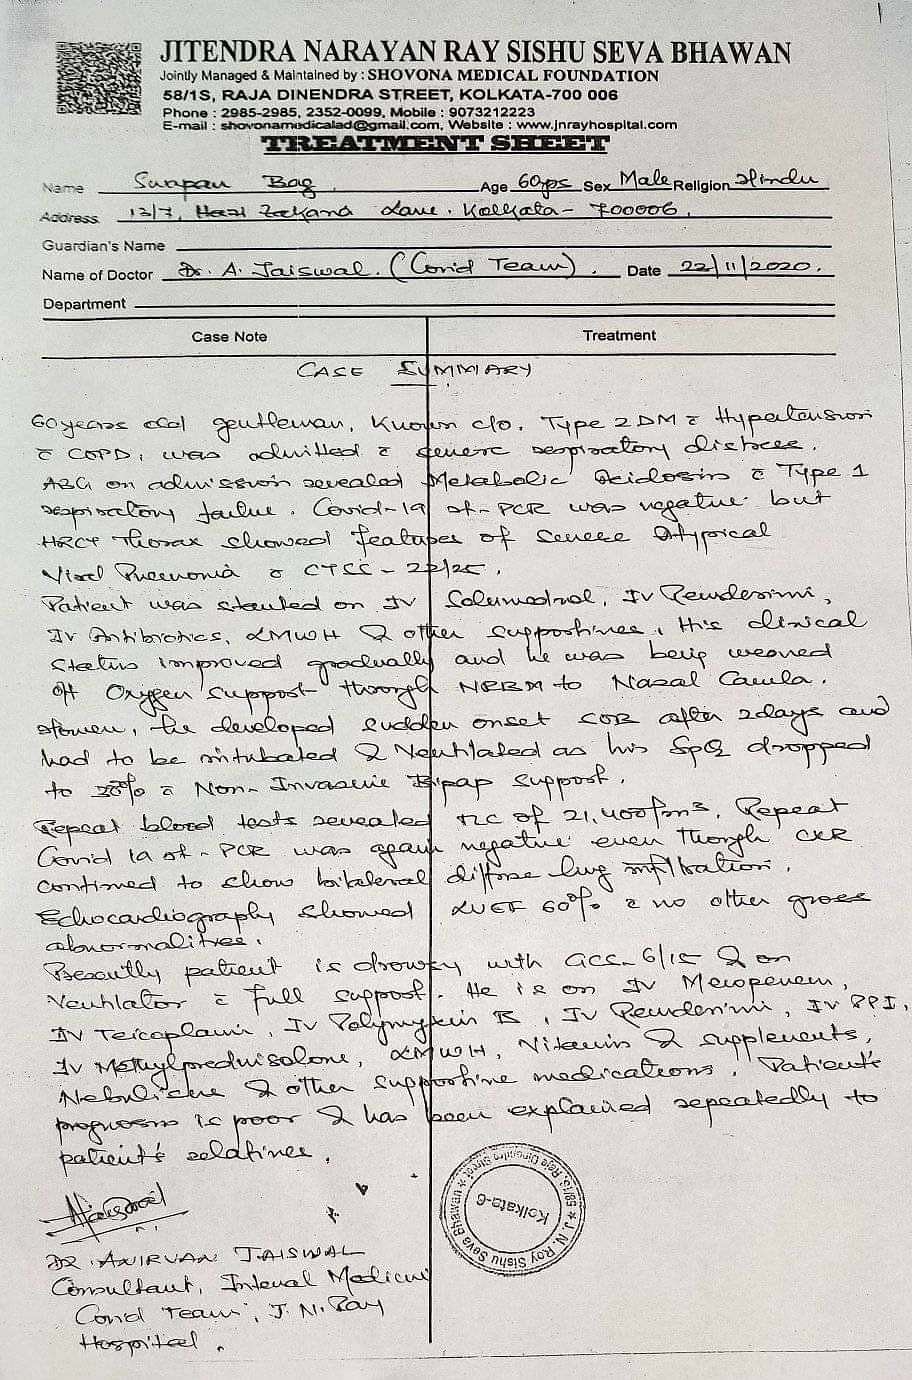 JITENDRA NARAYAN RAY SISHU SEVA BHAWAN
Jointly Managed & Maintained by : SHOVONA MEDICAL FOUNDATION
58/1S, RAJA DINENDRA STREET, KOLKATA-700 006
Phone : 2985-2985, 2352-0099, Mobile : 9073212223
E-mail : shovonamedicalad@gmail.com, Website : www.jnrayhospital.com
TREATMENT SHEET
Name Swapan Bag. Age 60yrs Sex Male Religion Hindu
Address 13/7, Lane. Kolkata - 700006.
Guardian's Name
Name of Doctor Dr. A. Jaiswal. (Covid Team). Date 22/11/2020.
Department
Case Note Treatment
CASE SUMMARY
60 years old gentleman, known c/o. Type 2 DM c̄ Hypertension
c̄ COPD, was admitted c̄ severe respiratory distress.
ABG on admission revealed Metabolic Acidosis c̄ Type 1
respiratory failure. Covid-19 rt-PCR was negative but
HRCT Thorax showed features of severe Atypical
Viral Pneumonia c̄ CTSS - 22/25.
Patient was started on IV Solumedrol, IV Remdesivir,
IV Antibiotics, LMWH & other supportives. His clinical
status improved gradually and he was being weaned
off Oxygen support through NRBM to Nasal Canula.
However, he developed sudden onset SOB after 2 days and
had to be intubated & Ventilated as his SpO2 dropped
to 38% c̄ Non-Invasive Bipap support.
Repeat blood tests revealed TLC of 21,400/mm³. Repeat
Covid 19 rt-PCR was again negative even though CXR
continued to show bilateral diffuse lung infiltration.
Echocardiography showed LVEF 60% c̄ no other gross
abnormalities.
Presently patient is drowsy with GCS-6/15 & on
Ventilator c̄ full support. He is on IV Meropenem,
IV Teicoplanin, IV Polymyxin B, IV Remdesivir, IV PPI,
IV Methylprednisolone, LMWH, Vitamins & supplements,
Nebulisers & other supportive medications. Patient's
prognosis is poor & has been explained repeatedly to
patient's relatives.
AJaiswal
DR. ANIRVAN JAISWAL
Consultant, Internal Medicine
Covid Team, J. N. Ray
Hospital.
J. N. Roy Sishu Seva Bhawan * 58/1S, Raja Dinendra Street *
Kolkata-6